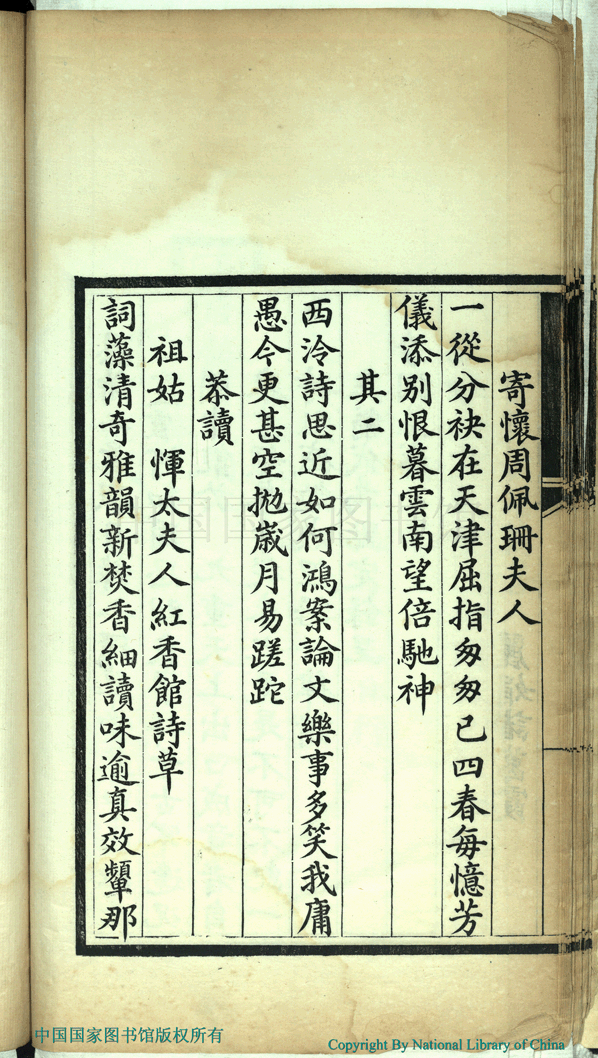 寄懷周佩珊夫人
一從分袂在天津屈指匆匆已四春每憶芳
儀添別恨暮雲南望倍馳神
其二
西泠詩思近如何鴻案論文樂事多笑我庸
愚今更甚空拋歲月易蹉跎
恭讀
祖姑　惲太夫人紅香館詩草
詞藻清奇雅韻新焚香細讀味逾真效顰那
中国国家图书馆版权所有
Copyright By National Library of China